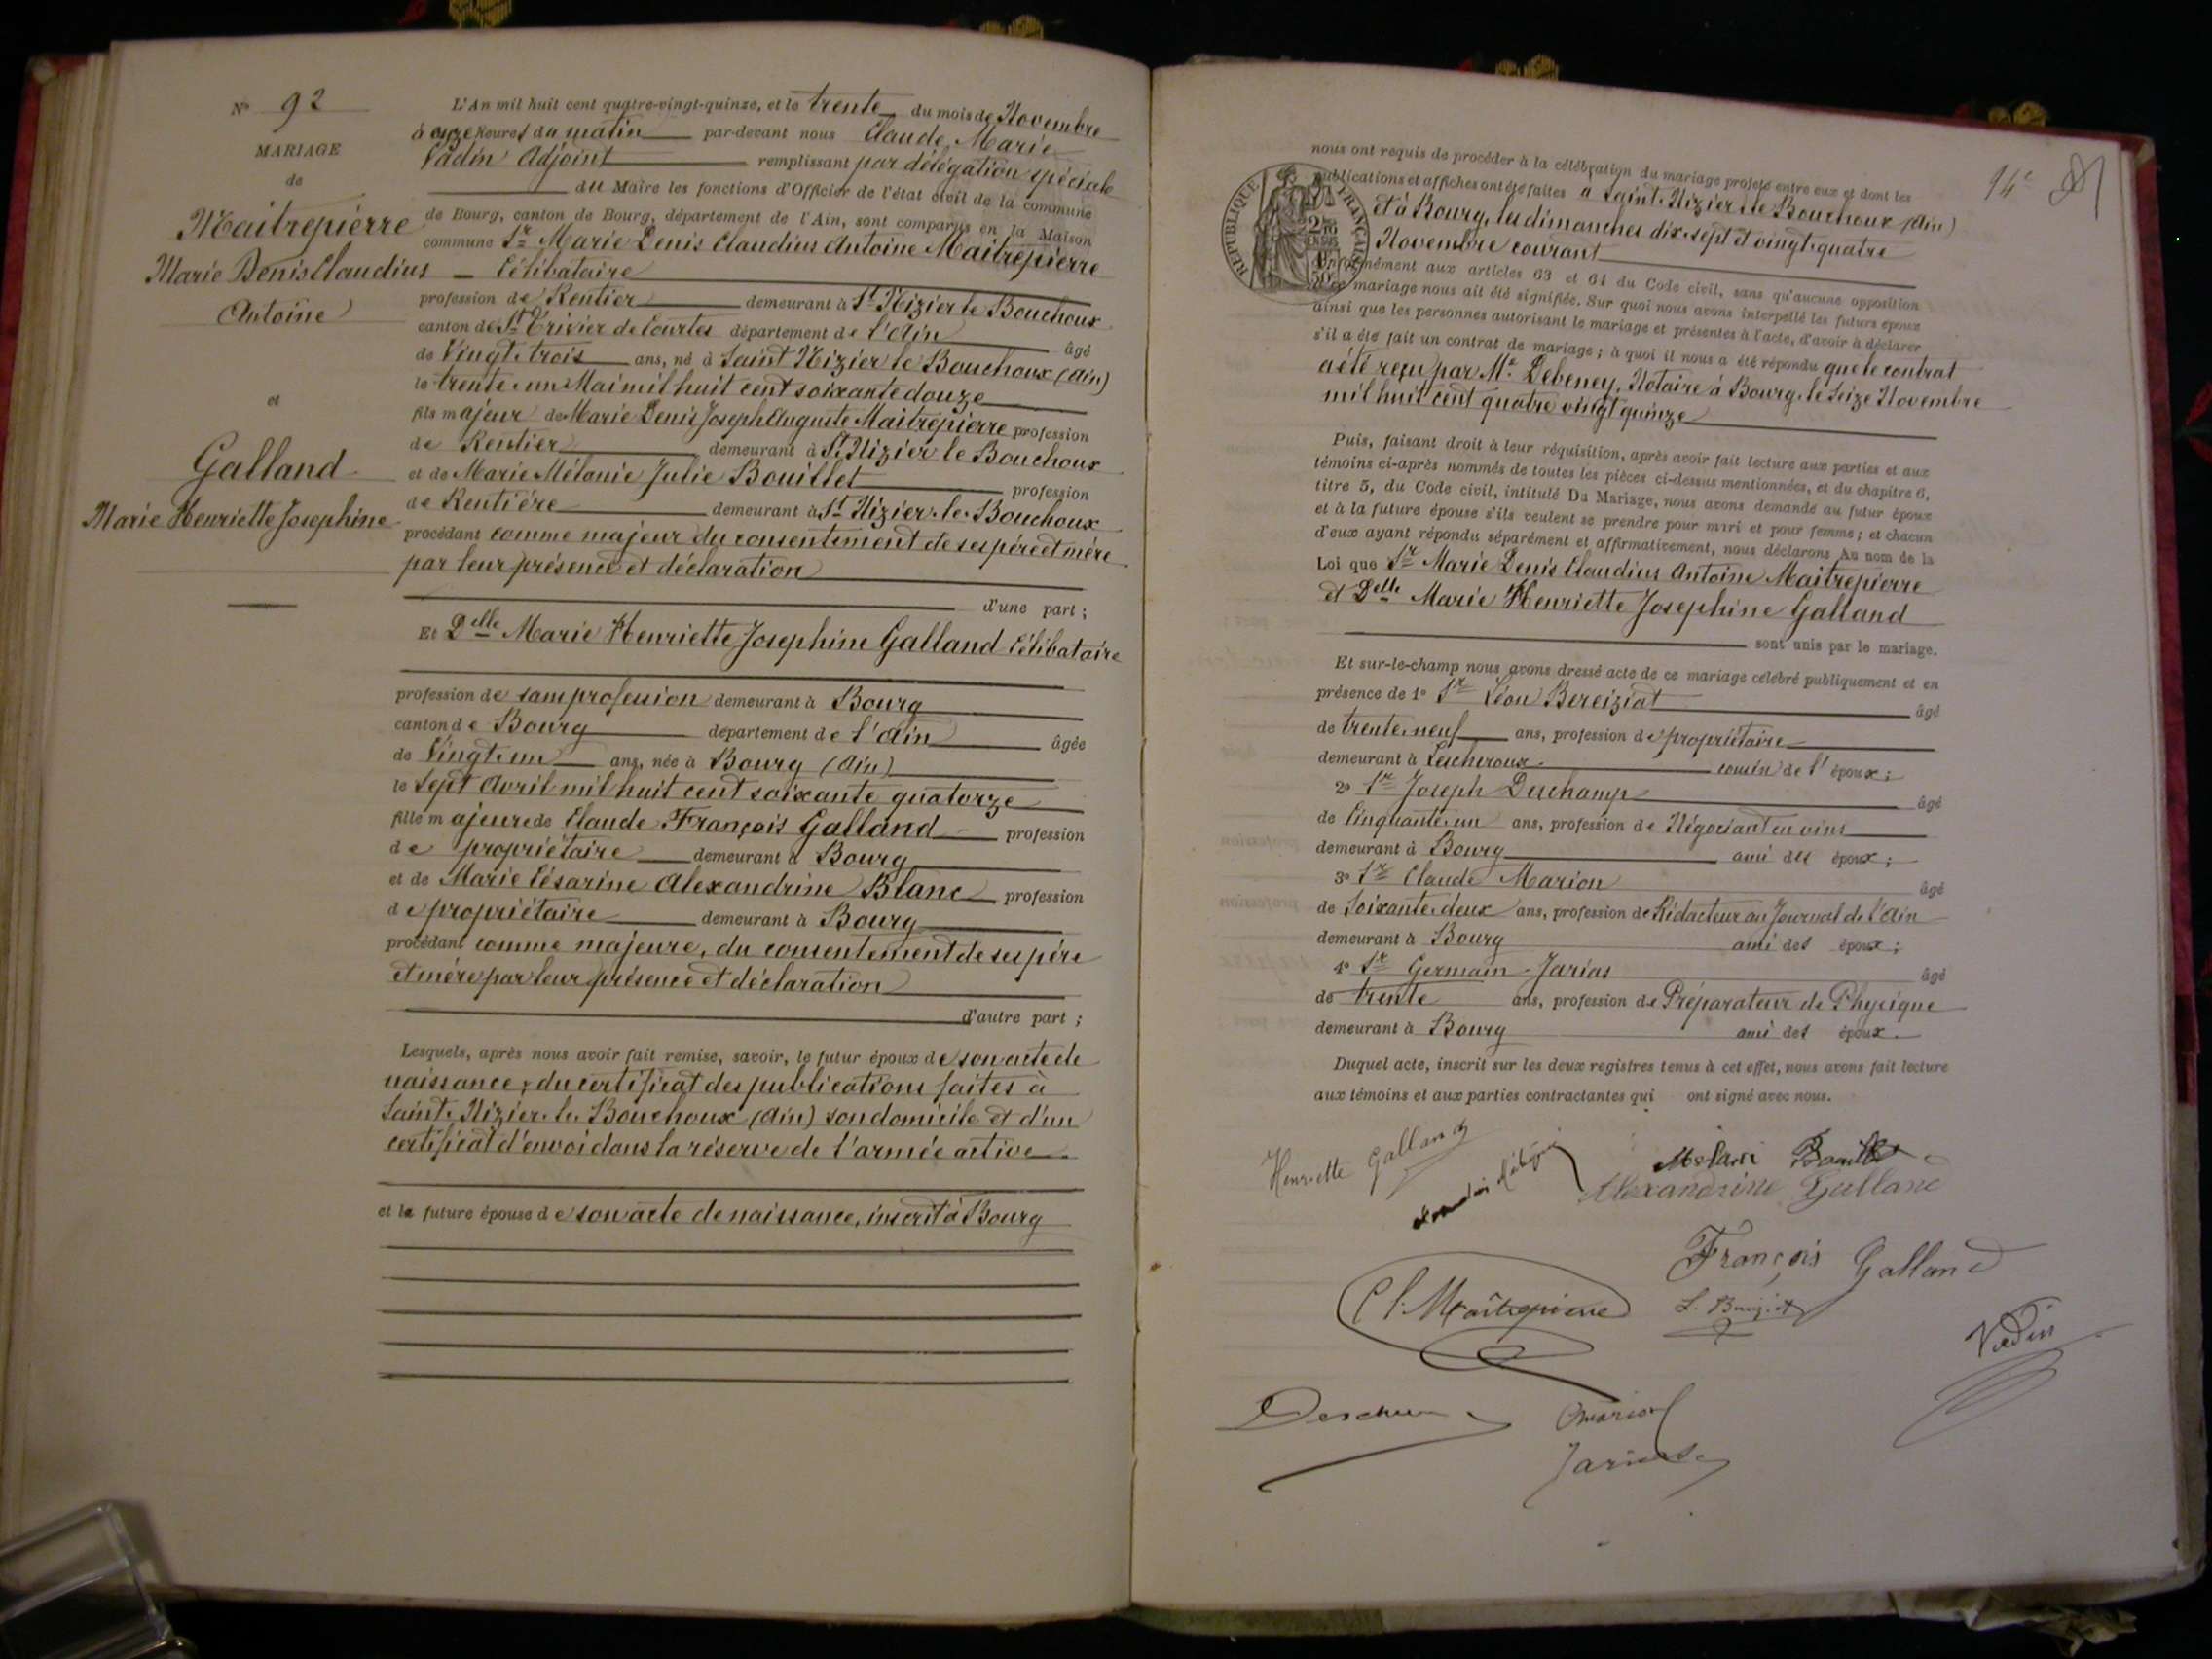 N° 92
MARIAGE
de
Maitrepierre
Marie Denis Claudius
Antoine
et
Galland
Marie Henriette Josephine
L'An mil huit cent quatre-vingt-quinze, et le trente du mois de Novembre
à onze heures du matin par-devant nous Claude, Marie
Vadin Adjoint remplissant par délégation spéciale
du Maire les fonctions d'Officier de l'état civil de la commune
de Bourg, canton de Bourg, département de l'Ain, sont comparus en la Maison
commune Sr Marie Denis Claudius Antoine Maitrepierre
Célibataire
profession de Rentier demeurant à St Nizier le Bouchoux
canton de St Trivier de Courtes département de l'Ain âgé
de Vingt-trois ans, né à Saint Nizier le Bouchoux (Ain)
le trente-un Mai mil huit cent soixante douze
fils majeur de Marie Denis Joseph Auguste Maitrepierre profession
de Rentier demeurant à St Nizier le Bouchoux
et de Marie Mélanie Julie Bouillet profession
de Rentière demeurant à St Nizier-le-Bouchoux
procédant comme majeur du consentement de ses père et mère
par leur présence et déclaration
d'une part ;
Et Delle Marie Henriette Josephine Galland Célibataire
profession de sans profession demeurant à Bourg
canton de Bourg département de l'Ain âgée
de Vingt-un ans, née à Bourg (Ain)
le Sept Avril mil huit cent soixante quatorze
fille majeure de Claude François Galland profession
de propriétaire demeurant à Bourg
et de Marie Césarine Alexandrine Blanc profession
de propriétaire demeurant à Bourg
procédant comme majeure, du consentement de ses père
et mère par leur présence et déclaration
d'autre part ;
Lesquels, après nous avoir fait remise, savoir, le futur époux de son acte de
naissance, du certificat des publications faites à
Saint-Nizier-le-Bouchoux (Ain) son domicile et d'un
certificat d'envoi dans la réserve de l'armée active
et la future épouse de son acte de naissance, inscrit à Bourg
14e
nous ont requis de procéder à la célébration du mariage projeté entre eux et dont les
publications et affiches ont été faites à Saint-Nizier-le-Bouchoux (Ain)
et à Bourg, les dimanches dix-sept et vingt-quatre
Novembre courant
conformément aux articles 63 et 64 du Code civil, sans qu'aucune opposition
mariage nous ait été signifiée. Sur quoi nous avons interpellé les futurs époux
ainsi que les personnes autorisant le mariage et présentes à l'acte, d'avoir à déclarer
s'il a été fait un contrat de mariage ; à quoi il nous a été répondu que le contrat
a été reçu par Me Debeney, Notaire à Bourg, le Seize Novembre
mil huit cent quatre vingt quinze
Puis, faisant droit à leur réquisition, après avoir fait lecture aux parties et aux
témoins ci-après nommés de toutes les pièces ci-dessus mentionnées, et du chapitre 6,
titre 5, du Code civil, intitulé Du Mariage, nous avons demandé au futur époux
et à la future épouse s'ils veulent se prendre pour mari et pour femme ; et chacun
d'eux ayant répondu séparément et affirmativement, nous déclarons Au nom de la
Loi que Sr Marie Denis Claudius Antoine Maitrepierre
et Delle Marie Henriette Josephine Galland
sont unis par le mariage.
Et sur-le-champ nous avons dressé acte de ce mariage célébré publiquement et en
présence de 1° Sr Léon Bereiziat âgé
de trente-neuf ans, profession de propriétaire
demeurant à Lescheroux cousin de l'époux ;
2° Sr Joseph Deschamps âgé
de Cinquante-un ans, profession de Négociant en vins
demeurant à Bourg ami des époux ;
3° Sr Claude Marion âgé
de Soixante-deux ans, profession de Rédacteur au Journal de l'Ain
demeurant à Bourg ami des époux ;
4° Sr Germain Jarias âgé
de trente ans, profession de Préparateur de Physique
demeurant à Bourg ami des époux.
Duquel acte, inscrit sur les deux registres tenus à cet effet, nous avons fait lecture
aux témoins et aux parties contractantes qui ont signé avec nous.
Henriette Galland
Bouillet
Alexandrine Galland
François Galland
Cl. Maîtrepierre
Vadin
Marion